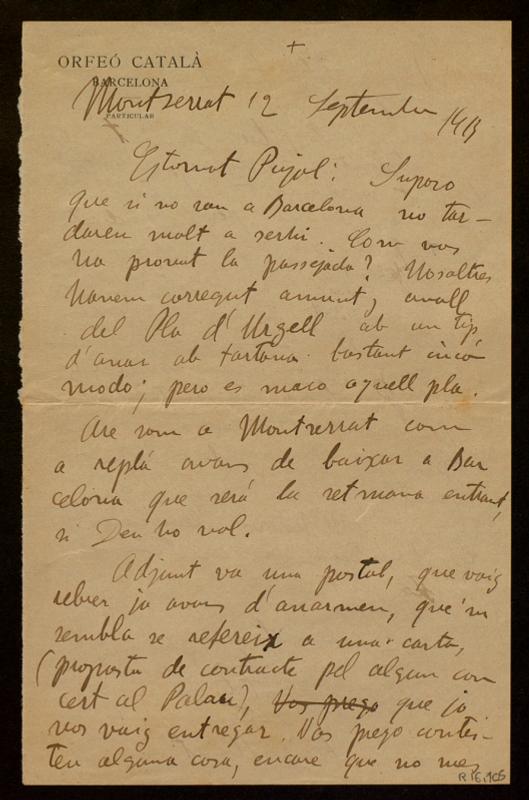 ORFEÓ CATALÀ
BARCELONA
PARTICULAR
Montserrat 12 Septembre 1913
Estimat Pujol: Suposo
que si no sou a Barcelona no tar-
dareu molt a serhi. Com vos
ha provat la passejada? Nosaltres
havem corregut amunt y avall
del Pla d'Urgell ab un tip
d'anar ab tartana bastant incó
modo; pero es maco aquell pla.
Are som a Montserrat com
a replá avans de baixar a Bar
celona que será la setmana entrant,
si Deu ho vol.
Adjunt va una postal, que vaig
rebrer ja avans d'anarmen, que'm
sembla se refereix a una carta,
(proposta de contracte pel algun con
cert al Palau), Vos prego que ja
vos vaig entregar. Vos prego contes-
teu alguna cosa, encare que no mes
R.16.906